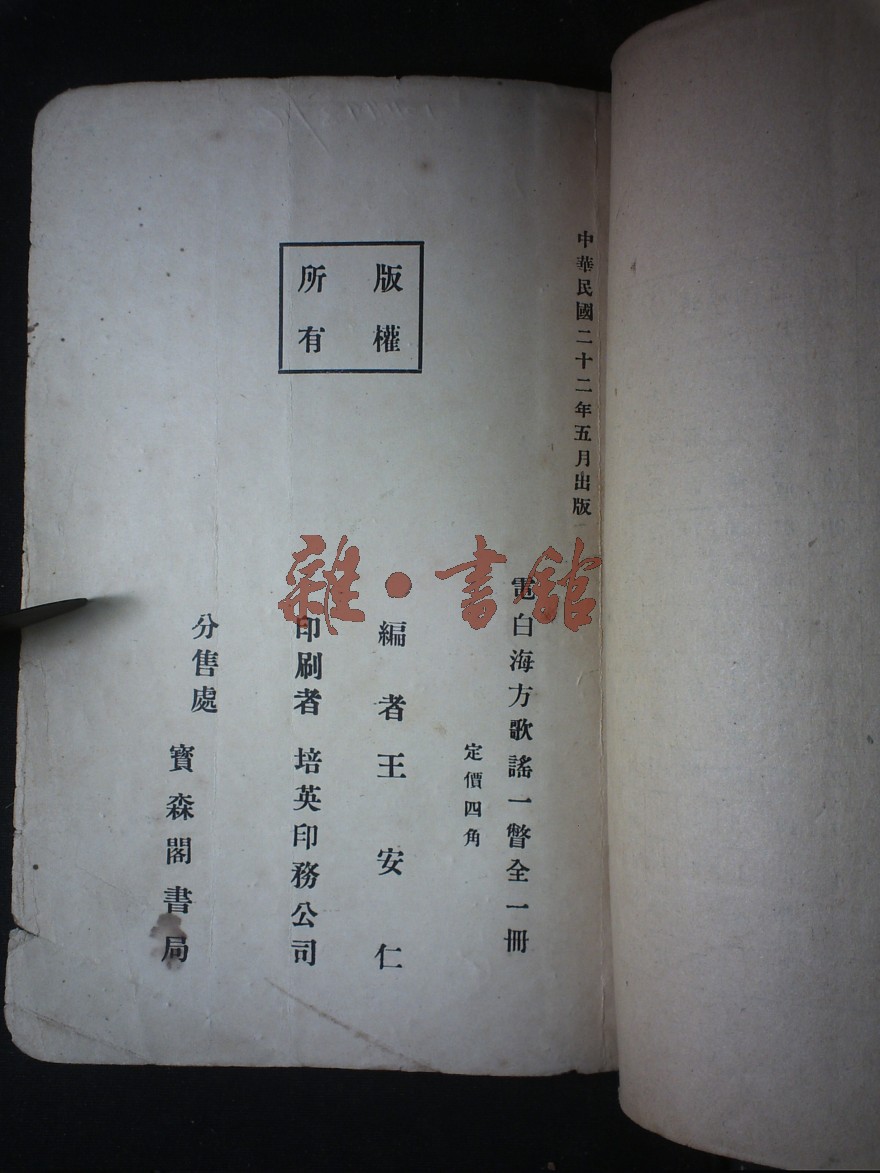 中華民國二十二年五月出版
電白海方歌謠一瞥全一冊
定價四角
版權
所有
編者王安仁
印刷者 培英印務公司
分售處 寳森閣書局
雜·書館